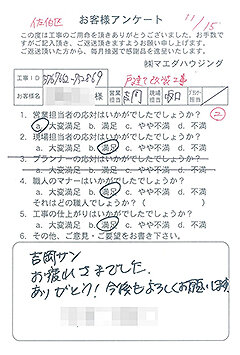 佐伯区
11/15
お客様アンケート
この度は工事のご用命を頂きありがとうございました。お手数ですがご記入頂き、ご返送頂きますようお願い申し上げます。
ご返送頂いた方から、毎月抽選で感謝品を進呈します。
㈱マエダハウジング
工事ID
戸建て改装工事
お客様名
様
営業担当
現場担当
プランナー担当
②
1. 営業担当者の応対はいかがでしたでしょうか?
a. 大変満足 b. 満足 c. やや不満 d. 不満
2. 現場担当者の応対はいかがでしたでしょうか?
a. 大変満足 b. 満足 c. やや不満 d. 不満
3. プランナーの応対はいかがでしたでしょうか?
a. 大変満足 b. 満足 c. やや不満 d. 不満
4. 職人のマナーはいかがでしたでしょうか?
a. 大変満足 b. 満足 c. やや不満 d. 不満
それはどの職人でしょうか?(
5. 工事の仕上がりはいかがでしたでしょうか?
a. 大変満足 b. 満足 c. やや不満 d. 不満
6. その他、ご意見・ご要望をお書き下さい。
吉岡サン
お疲れさまでした。
ありがとう!今後もよろしくお願い